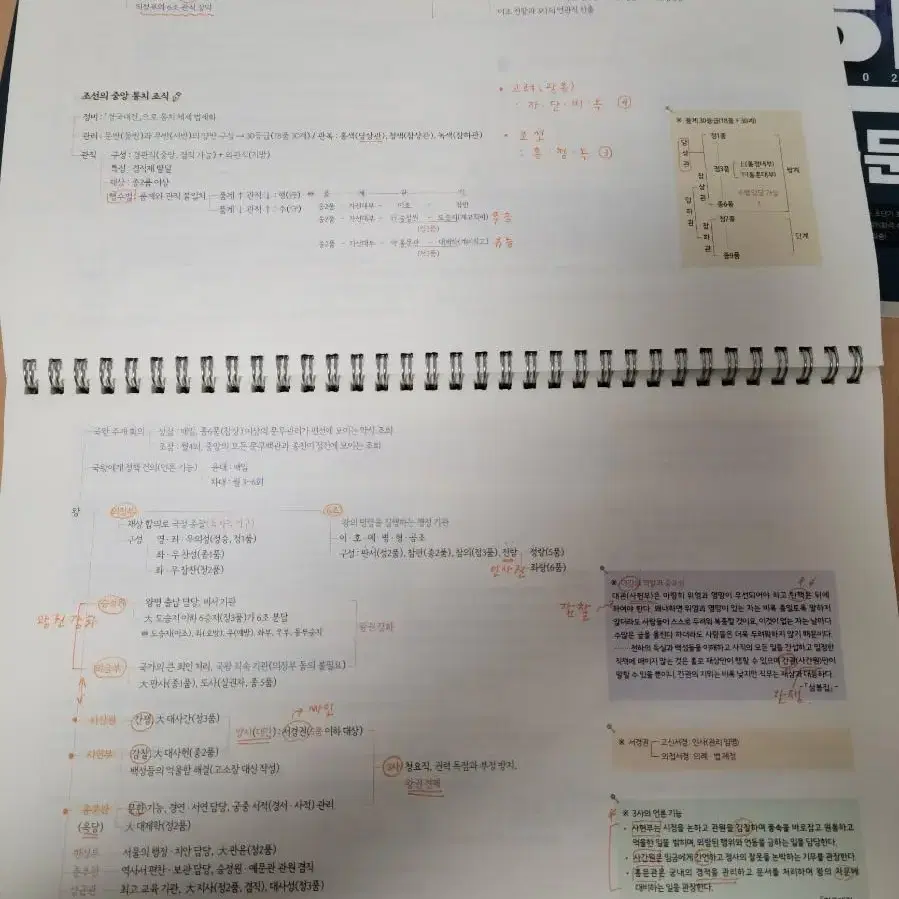 의정부의 6조 관직 장악
조선의 중앙 통치 조직
정비 : 「경국대전」으로 통치 체제 법제화
관리 : 문반(동반)과 무반(서반)의 양반 구성 → 30등급(18품 30계) / 관복 : 홍색(당상관), 청색(참상관), 녹색(참하관)
관직
구성 : 경관직(중앙, 겸직 가능) + 외관직(지방)
특징 : 겸직제 발달
재상 : 종2품 이상
행수법 : 품계와 관직 불일치
품계↑ 관직↓ : 행(行)
품계↓ 관직↑ : 수(守)
• 고려(광종)
: 자·단·비·녹 ④
• 조선
: 홍·청·녹 ③
※ 품계 30등급(18품 + 30계)
정1품
당상관
정3품
참상관
당하관
종6품
정7품
참하관
종9품
단계
국왕 주재 회의
상참 : 매일, 종6품(참상) 이상의 문무관리가 편전에 모이는 약식 조회
조참 : 월4회, 중앙의 모든 문무백관과 종친이 정전에 모이는 조회
국왕에게 정책 건의(언론 기능)
윤대 : 매일
차대 : 월 3~6회
왕
의정부
재상 합의로 국정 총괄
구성
영·좌·우의정(정승, 정1품)
좌·우 찬성(종1품)
좌·우 참찬(정2품)
6조
왕의 명령을 집행하는 행정 기관
이·호·예·병·형·공조
구성 : 판서(정2품), 참판(종2품), 참의(정3품), 전랑
정랑(5품)
좌랑(6품)
인사권
왕권 강화
승정원
왕명 출납 담당, 비서 기관
大 도승지 이하 6승지(정3품)가 6조 분담
도승지(이조), 좌(호방), 우(예방), 좌부, 우부, 동부승지
왕권강화
의금부
국가의 큰 죄인 처리, 국왕 직속 기관(의정부 동의 불필요)
大 판사(종1품), 도사(실권자, 종 5품)
사간원
간쟁, 大 대사간(정3품)
양사(대간) : 서경권(5품 이하 대상)
사헌부
감찰, 大 대사헌(종2품)
백성들의 억울함 해결(고소장 대신 작성)
3사 청요직, 권력 독점과 부정 방지,
왕권 견제
홍문관
(옥당)
문한 기능, 경연·서연 담당, 궁중 서적(경서·사적) 관리
大 대제학(정2품)
한성부
서울의 행정·치안 담당, 大 판윤(정2품)
춘추관
역사서 편찬·보관 담당, 승정원·예문관 관원 겸직
성균관
최고 교육 기관, 大 지사(정2품, 겸직), 대사성(정3품)
감찰
대관(사헌부)은 마땅히 위엄과 명망이 우선되어야 하고 탄핵은 뒤에
하여야 한다. 왜냐하면 위엄과 명망이 있는 자는 비록 종일토록 말하지
않더라도 사람들이 스스로 두려워 복종할 것이요, 이것이 없는 자는 날마다
수많은 글을 올린다 하더라도 사람들은 더욱 두려워하지 않기 때문이다.
······ 천하의 득실과 백성들을 이해하고 사직의 모든 일을 간섭하고 일정한
직책에 매이지 않는 것은 홀로 재상만이 행할 수 있으며 간관(사간원)만이
말할 수 있을 뿐이니, 간관의 지위는 비록 낮지만 직무는 재상과 대등하다.
-「삼봉집」-
간쟁
※ 서경권
고신서경 : 인사(관리 임명)
의첩서경 : 의례·법 제정
※ 3사의 언론 기능
• 사헌부는 시정을 논하고 관원을 감찰하며 풍속을 바로잡고 원통하고
억울한 일을 밝히며, 외람된 행위와 언동을 금하는 일을 담당한다.
• 사간원은 임금에게 간언하고 정사의 잘못을 논박하는 기무를 관장한다.
• 홍문관은 궁내의 경적을 관리하고 문서를 처리하며 왕의 자문에
대비하는 일을 관장한다.